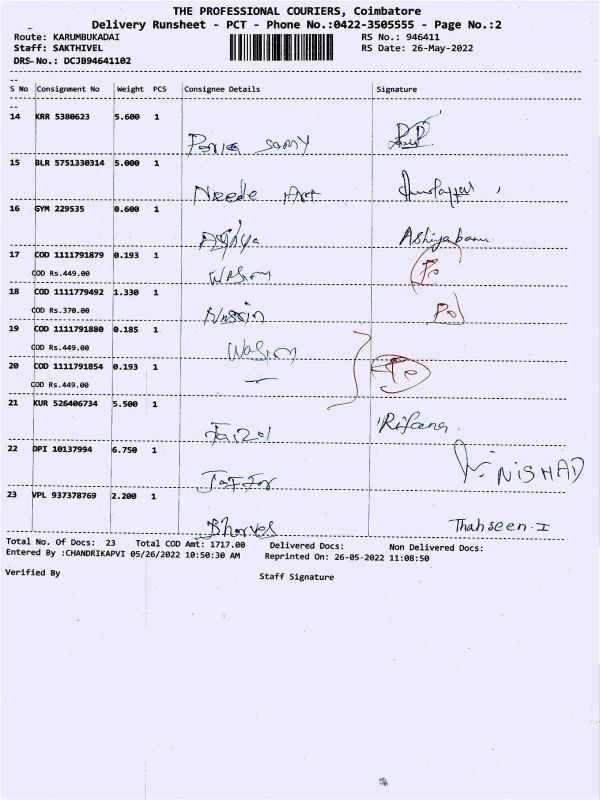 THE PROFESSIONAL COURIERS, Coimbatore
Delivery Runsheet - PCT - Phone No.:0422-3505555 - Page No.:2
Route: KARUMBUKADAI RS No.: 946411
Staff: SAKTHIVEL RS Date: 26-May-2022
DRS-No.: DCJB94641102
S No Consignment No Weight PCS Consignee Details Signature
14 KRR 5380623 5.600 1
samy
15 BLR 5751330314 5.000 1
Neede Art
16 GYM 229535 0.600 1
Ashiya Ashiyabanu
17 COD 1111791879 0.193 1
COD Rs.449.00 Wasim
18 COD 1111779492 1.330 1
COD Rs.370.00 Nassin
19 COD 1111791880 0.185 1
COD Rs.449.00 Wasim
20 COD 1111791854 0.193 1
COD Rs.449.00
21 KUR 526406734 5.500 1
Faizal Rifana
22 DPI 10137994 6.750 1
Jaffar NISHAD
23 VPL 937378769 2.200 1
Thahseen.I
Total No. Of Docs: 23 Total COD Amt: 1717.00 Delivered Docs: Non Delivered Docs:
Entered By :CHANDRIKAPVI 05/26/2022 10:50:30 AM Reprinted On: 26-05-2022 11:08:50
Verified By Staff Signature